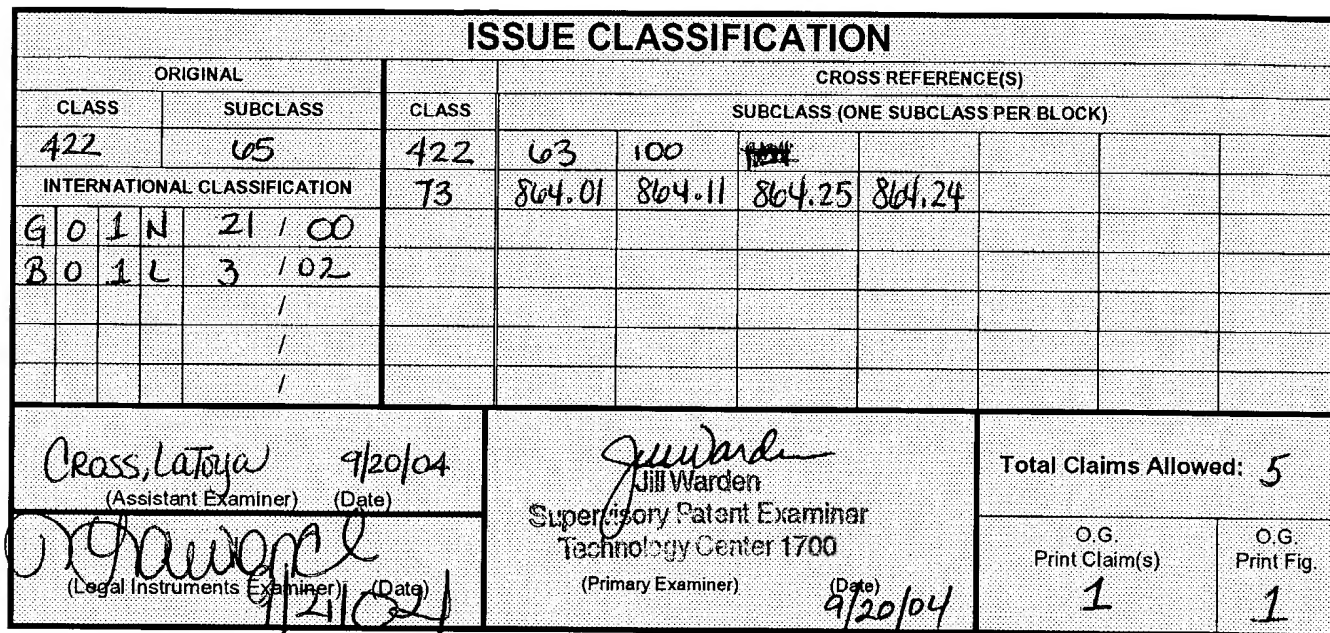 ISSUE CLASSIFICATION
ORIGINAL
CROSS REFERENCE(S)
CLASS SUBCLASS CLASS SUBCLASS (ONE SUBCLASS PER BLOCK)
422 65 422 63 100
INTERNATIONAL CLASSIFICATION 73 864.01 864.11 864.25 864.24
G 0 1 N 21 / 00
B 0 1 L 3 / 02
/
/
/
Cross, LaToya 9/20/04
(Assistant Examiner) (Date)
Jill Warden
Jill Warden
Supervisory Patent Examiner
Technology Center 1700
(Primary Examiner) (Date)
9/20/04
Total Claims Allowed: 5
(Legal Instruments Examiner) (Date)
O.G.
Print Claim(s)
1
O.G.
Print Fig.
1